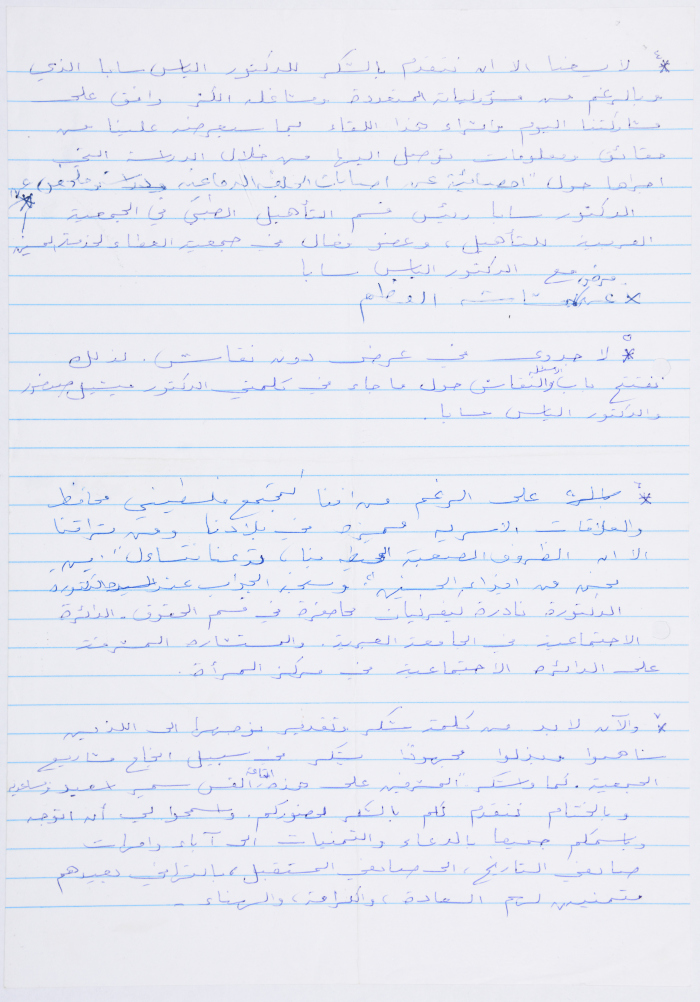 * لا يسعنا الا ان نتقدم بالشكر للدكتور الياس سابا الذي
وبالرغم من مسؤولياته المتعددة ومشاغله الكثر وافق على
مشاركتنا اليوم واثراء هذا اللقاء بما سيعرضه علينا من
حقائق ومعلومات توصل اليها من خلال الدراسة التي
اجراها حول "احصائية عن اصابات الدماغية
الدكتور سابا رئيس قسم التأهيل الطبي في الجمعية
العربية للتأهيل، وعضو فعال في جمعية العطاء لخدمة المسنين
مع الدكتور الياس سابا
* العظام
* لا جدوى في عرض دون نقاش. لذلك
نفتتح باب الاسئلة والنقاش حول ما جاء في كلمتي الدكتور ميشيل
والدكتور الياس سابا.
* على الرغم من اننا كمجتمع فلسطيني محافظ
والعلاقات الاسرية مميزة في بلادنا ومن تراثنا
الا ان الظروف الصعبة المحيطة بنا، تدعنا نتساءل "اين
نحن من ايذاء المسنين"؟ وسنجد الجواب عند
الدكتورة نادرة كيفركيان محاضرة في قسم الحقوق - الدائرة
الاجتماعية في الجامعة العبرية. والمستشاره المشرفة
على الدائره الاجتماعية في مركز المرأة.
* والآن لا بد من كلمة شكر وتقدير نوجهها الى اللذين
ساهموا وبذلوا مجهودًا يشكر في سبيل انجاح مشاريع
الجمعية. كما ونشكر المشرفين على هذه القاعة القس سمير اسعيد
وبالختام نتقدم لكم بالشكر لحضوركم. واسمحوا لي أن اتوجه
وباسمكم جميعا بالدعاء والتمنيات الى آباء وامهات
صانعي التاريخ، الى صانعي المستقبل، بعيدهم
متمنين لهم السعادة، والكرامة، والهناء -